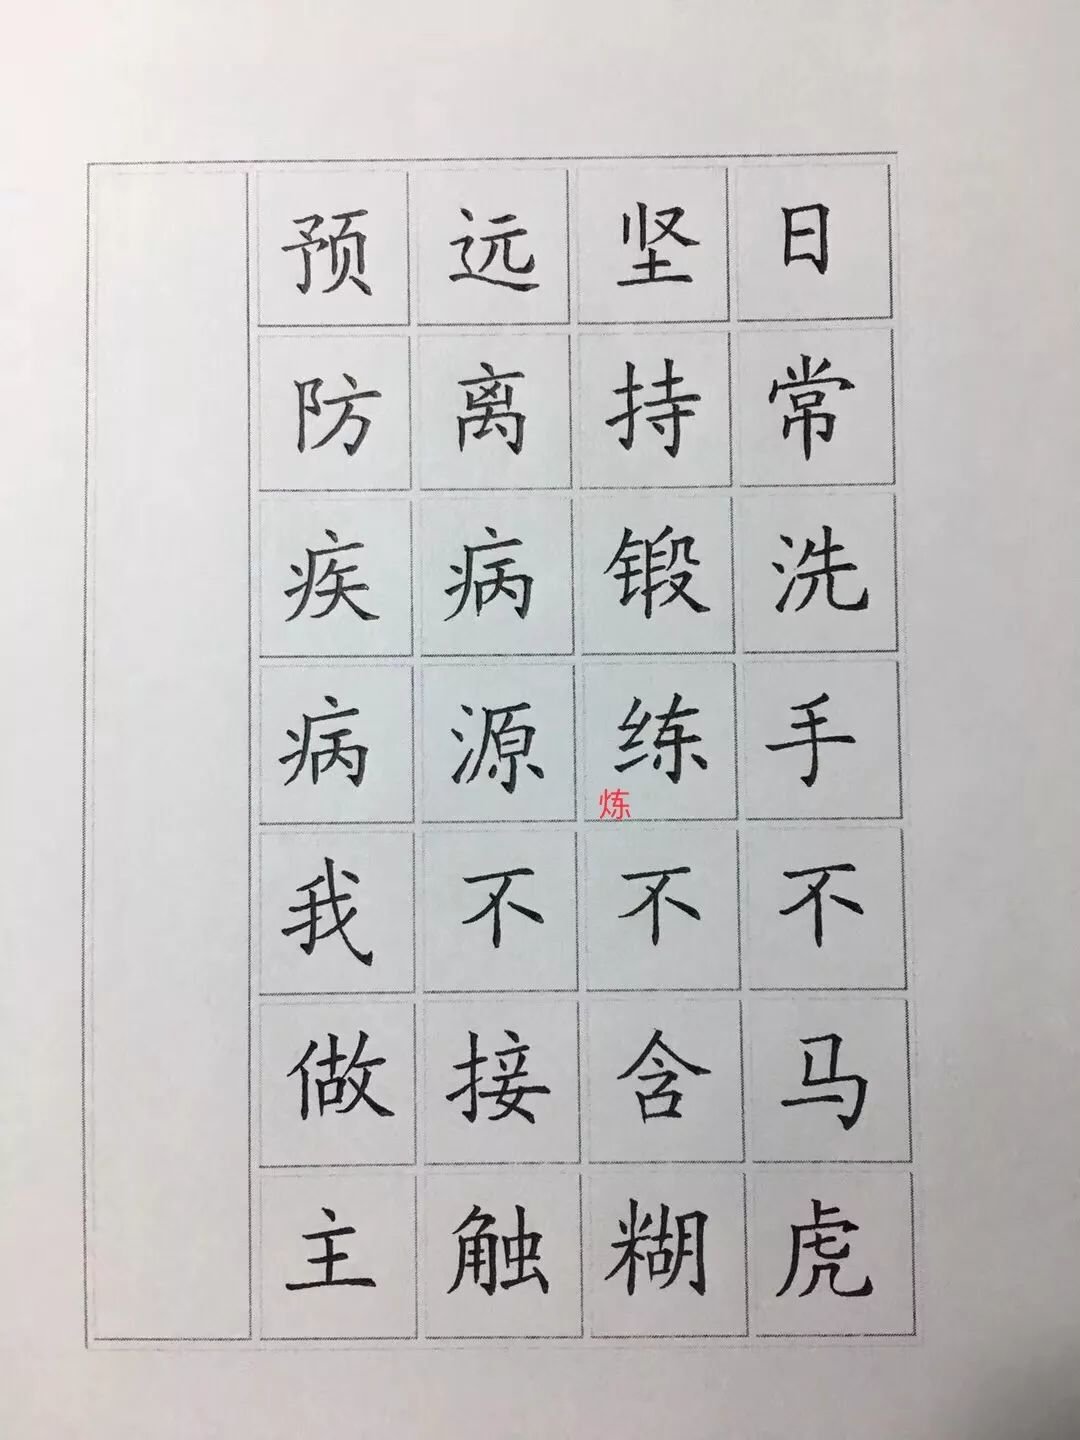 日常洗手不马虎
坚持锻练不含糊
炼
远离病源不接触
预防疾病我做主